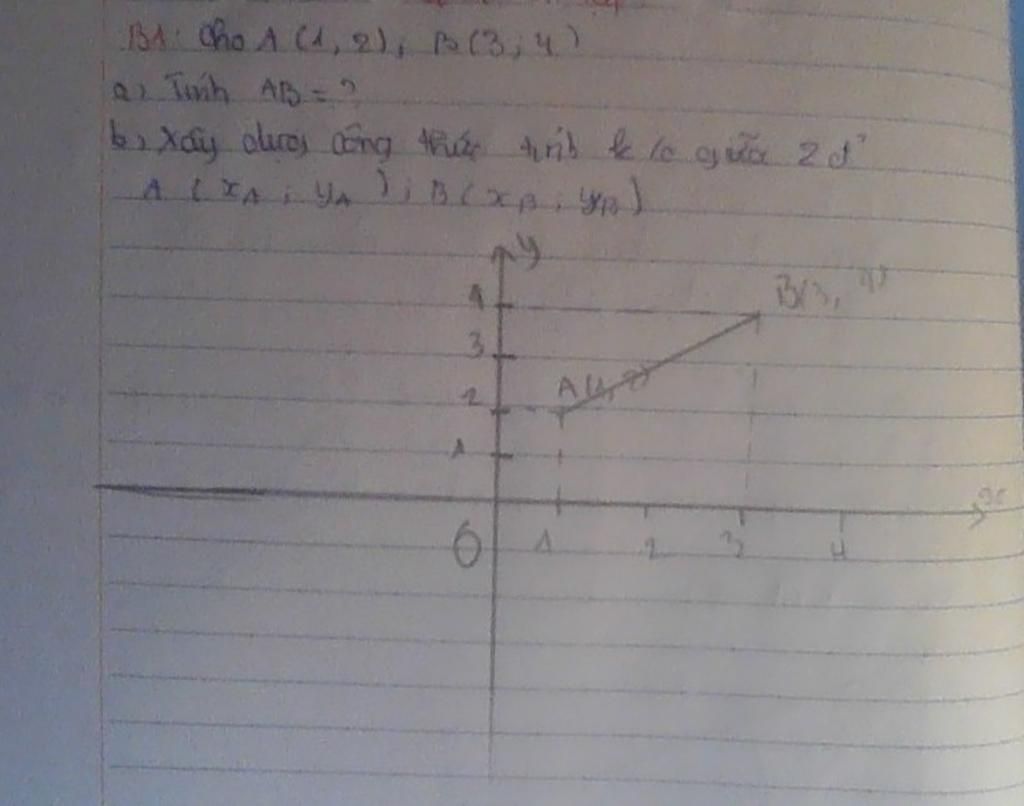 B1: Cho A (1, 2), B(3; 4)
a, Tính AB = ?
b, Xây dựng công thức tính k/c giữa 2 đ'
A ( xA ; yA ) ; B ( xB ; yB )
y
4
B(3, 4)
3
A(1, 2)
2
1
x
O 1 2 3 4